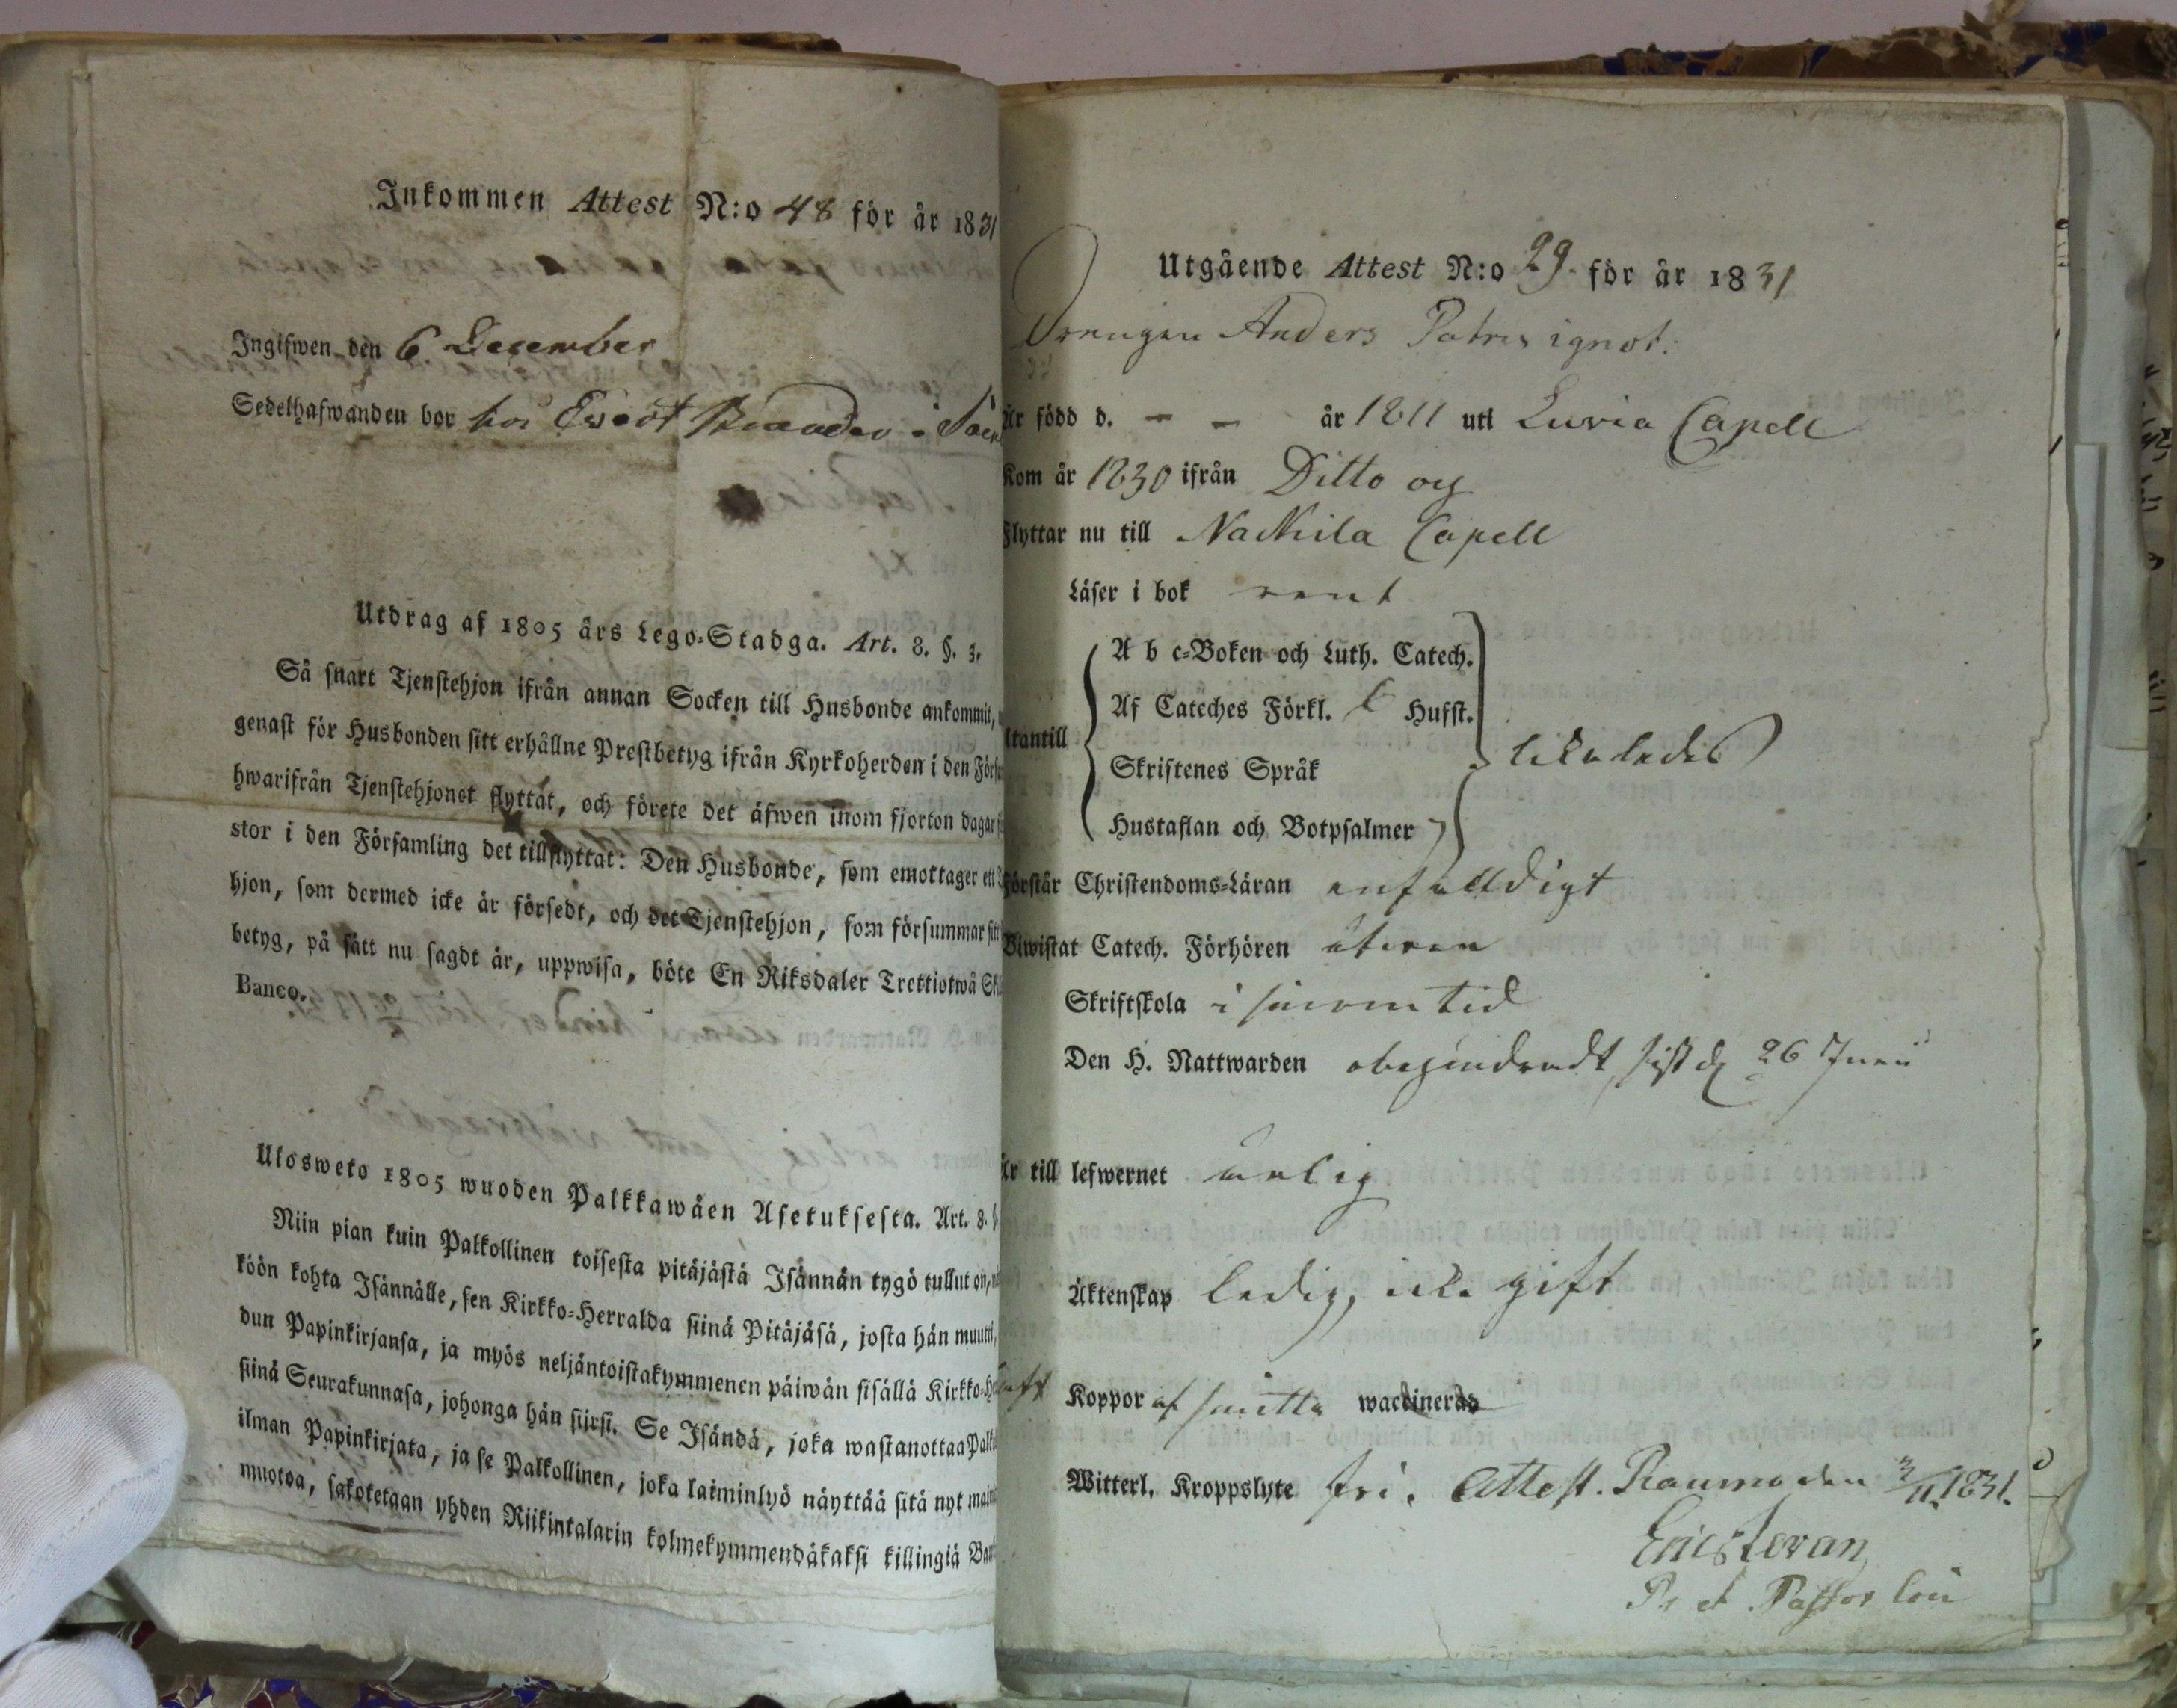 Inkommen Attest N:o 48 för år 1831
Ingifwen den 6 December
Sedelhafwanden bor hos
Utdrag af 1805 års Lego-Stadga. Art. 8. §. 3.
Så snart Tjenstehjon ifrån annan Socken till Husbonde ankommit,
genast för Husbonden sitt erhållne Prestbetyg ifrån Kyrkoherden i den
hwarifrån Tjenstehjonet flyttat, och förete det äfwen inom fjorton dagar
stor i den Församling det tillflyttat: Den Husbonde, som emottager ett
hjon, som dermed icke är försedt, och det Tjenstehjon, som försummar sitt
betyg, på sätt nu sagdt är, uppwisa, böte En Riksdaler Trettiotwå
Banco.
Ulosweto 1805 wuoden Palkkawäen Asetuksesta. Art. 8.
Niin pian kuin Palkollinen toisesta pitäjästä Isännän tygö tullut on,
köön kohta Isännälle, sen Kirkko-Herralda siinä Pitäjäsä, josta hän muutti,
dun Papinkirjansa, ja myös neljäntoistakymmenen päiwän sisällä
siinä Seurakunnasa, johonga hän siirsi. Se Isändä, joka wastanottaa
ilman Papinkirjata, ja se Palkollinen, joka laiminlyö näyttää sitä nyt
muotoa, sakotetaan yhden Riikintalarin kolmekymmendäkaksi killingiä
Utgående Attest N:o 29. för år 1831
Drengen Anders Patris ignot.
Är född d. – – år 1811 uti Luvia Capell
Kom år 1830 ifrån Ditto og
Flyttar nu till Nackila Capell
Läser i bok rent
A b c-Boken och Luth. Catech.
Af Cateches Förkl. Hufst.
Utantill
Skriftenes Språk
likaledes
Hustaflan och Botpsalmer
Förstår Christendoms-Läran enfalldigt
Biwistat Catech. Förhören äfven
Skriftskola i sinom tid
Den H. Nattwarden obehindradt, sist d 26 Junii
Är till lefwernet ärlig
Äktenskap ledig, icke gift
haft Koppor af smitta waccinerad
Witterl. Kroppslyte fri. Attest. Raumo den 3/11 1831.